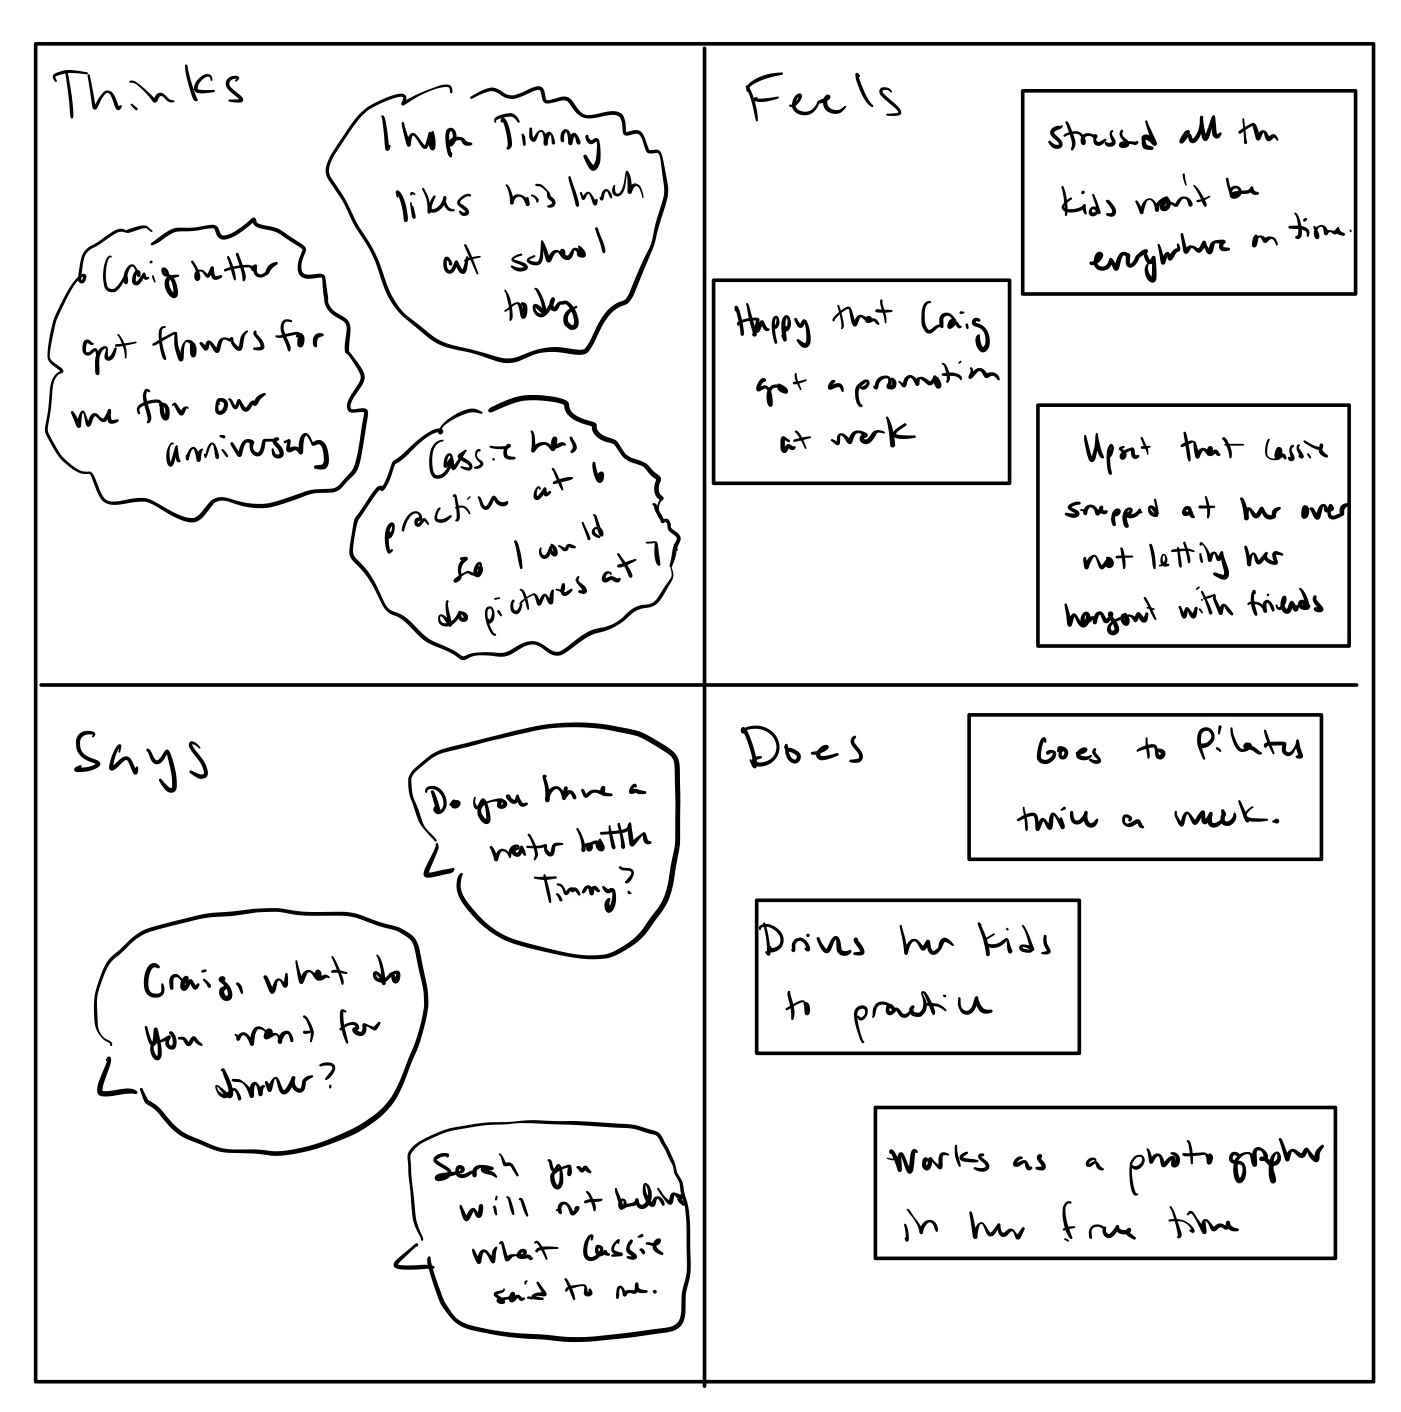 Thinks
I hope Timmy
likes his lunch
at school
today
Craig better
get flowers for
me for our
anniversary
Cassie has
practice at 6
so I could
do pictures at 7
Feels
Stressed all the
kids won't be
everywhere on time.
Happy that Craig
got a promotion
at work
Upset that Cassie
snapped at her over
not letting her
hangout with friends
Says
Do you have a
water bottle
Timmy?
Craig, what do
you want for
dinner?
Sarah you
will not believe
what Cassie
said to me.
Does
Goes to Pilates
twice a week.
Drives her kids
to practice
Works as a photographer
in her free time